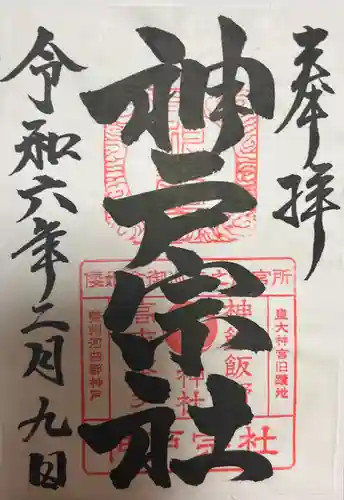 奉拝
神戸宗社
令和六年二月九日
皇大神宮旧蹟地
神館飯野高市
神社
勢州河曲郡神戸
神戸宗社